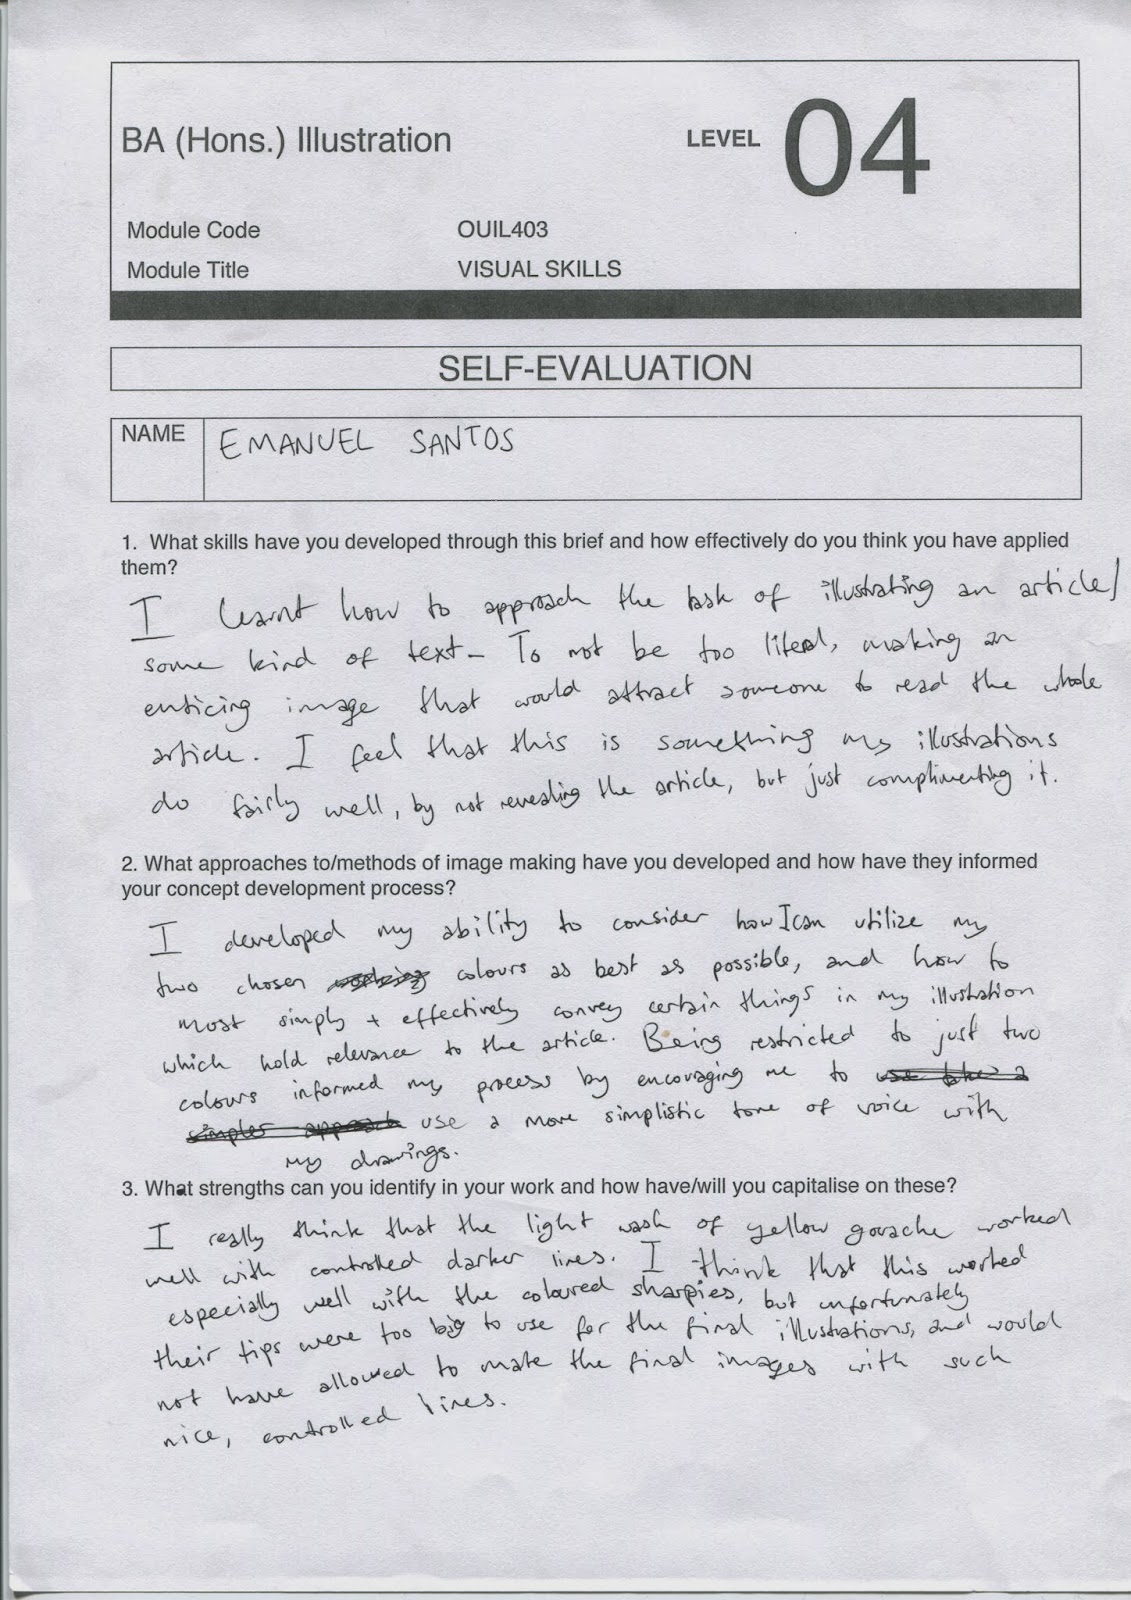 BA (Hons.) Illustration
LEVEL 04
Module Code OUIL403
Module Title VISUAL SKILLS
SELF-EVALUATION
NAME EMANUEL SANTOS
1. What skills have you developed through this brief and how effectively do you think you have applied
them?
I learnt how to approach the task of illustrating an article/
some kind of text- To not be too literal, making an
enticing image that would attract someone to read the whole
article. I feel that this is something my illustrations
do fairly well, by not revealing the article, but just complimenting it.
2. What approaches to/methods of image making have you developed and how have they informed
your concept development process?
I developed my ability to consider how I can utilize my
two chosen colours as best as possible, and how to
most simply + effectively convey certain things in my illustration
which hold relevance to the article. Being restricted to just two
colours informed my process by encouraging me to use like a
simpler approach use a more simplistic tone of voice with
my drawings.
3. What strengths can you identify in your work and how have/will you capitalise on these?
I really think that the light wash of yellow gouache worked
well with controlled darker lines. I think that this worked
especially well with the coloured sharpies, but unfortunately
their tips were too big to use for the final illustrations, and would
not have allowed to make the final images with such
nice, controlled lines.